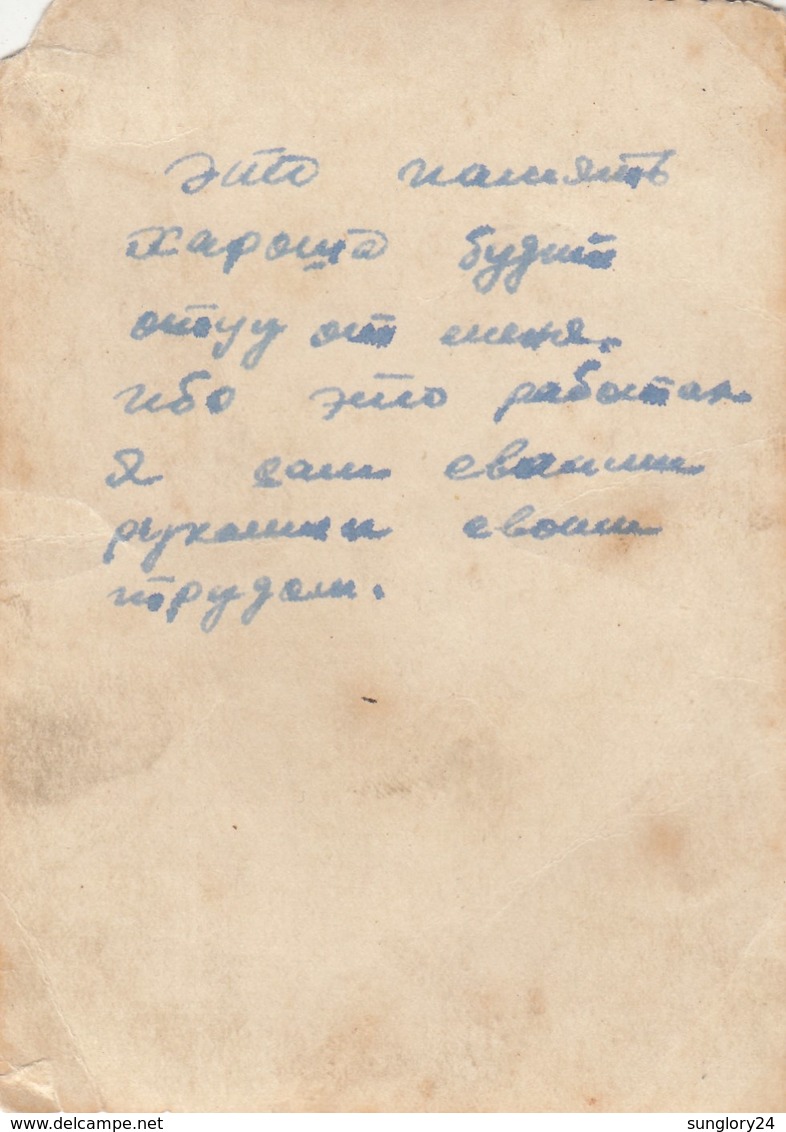 это память
хароша будит
отцу от меня.
ибо это работал
я сам сваими
рукамии своим
трудом.
www.delcampe.net
sunglory24